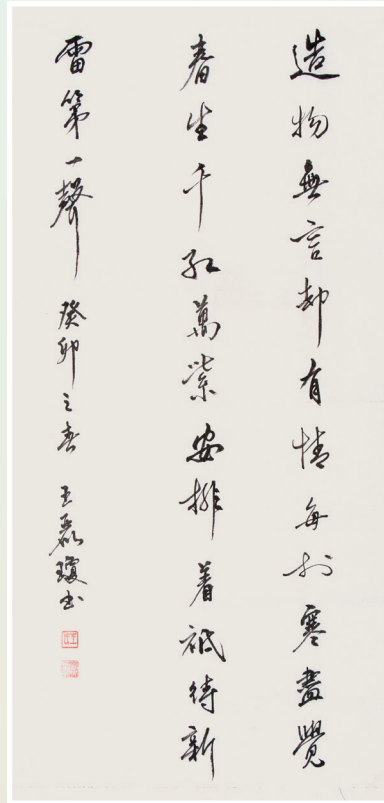 造物無言却有情每於寒盡覺
春生千紅萬紫安排着祗待新
雷第一聲 癸卯之春 王磊瓊书